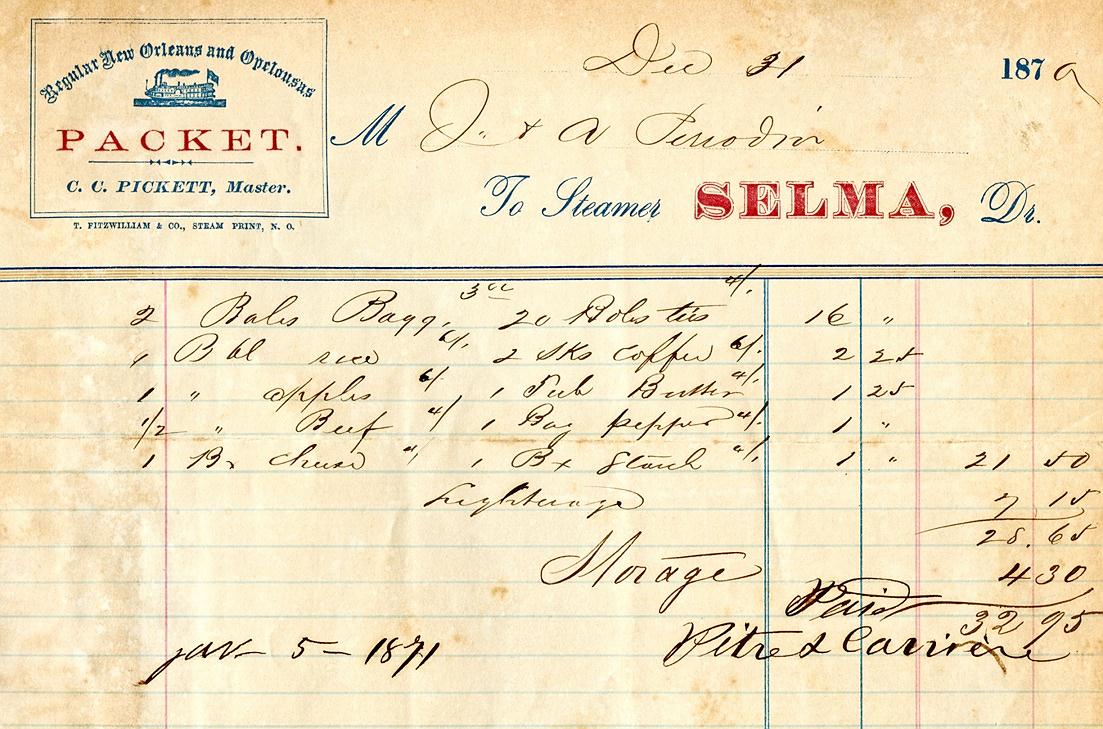 Regular New Orleans and Opelousas
PACKET.
C. C. PICKETT, Master.
T. FITZWILLIAM & CO., STEAM PRINT, N. O.
Dec 31 1870
M J. & A Perrodin
To Steamer SELMA, Dr.
2 Bales Bagg, 3 00 20 Bdls ties 4/. 16 "
1 Bbl rice 6/. 2 Sks coffee 6/. 2 25
1 " apples 6/ 1 Tub Butter 4/. 1 25
1/2 " Beef 4/ 1 Bag pepper 4/. 1 "
1 Bx cheese "/ 1 Bx Starch 4/. 1 " 21 50
Lighterage 7 15
28.65
Storage 4 30
Paid 32 95
Jan 5 - 1871 Pitre & Carrière